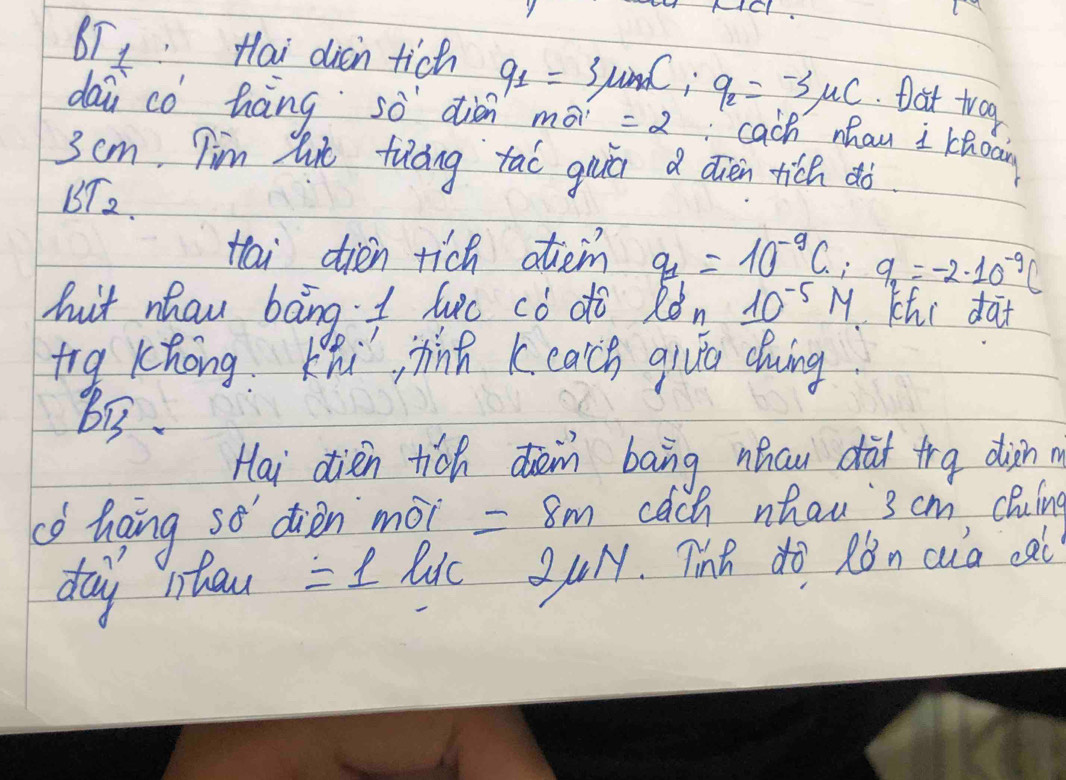 BT1: Hai diện tích q1 = 3μmC; q2 = -3μC. Đặt trog
dầu có hằng số điện môi = 2; cách nhau 1 khoảng
3 cm. Tìm lực tương tác giữa 2 điện tích đó.
BT2.
Hai điện tích điểm q1 = 10⁻⁹C; q = -2·10⁻⁹C
hút nhau bằng 1 lực có độ lớn 10⁻⁵ N. khi đặt
trg không khí, tính k.cách giữa chúng.
BT3.
Hai điện tích điểm bằng nhau đặt trg điện m
có hằng số điện môi = 8m cách nhau 3 cm, chúng
đẩy nhau = 1 lực 2μN. Tính độ lớn của các